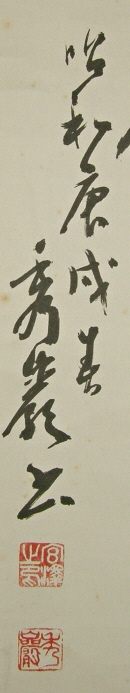 昭和庚戌春
秀巖書